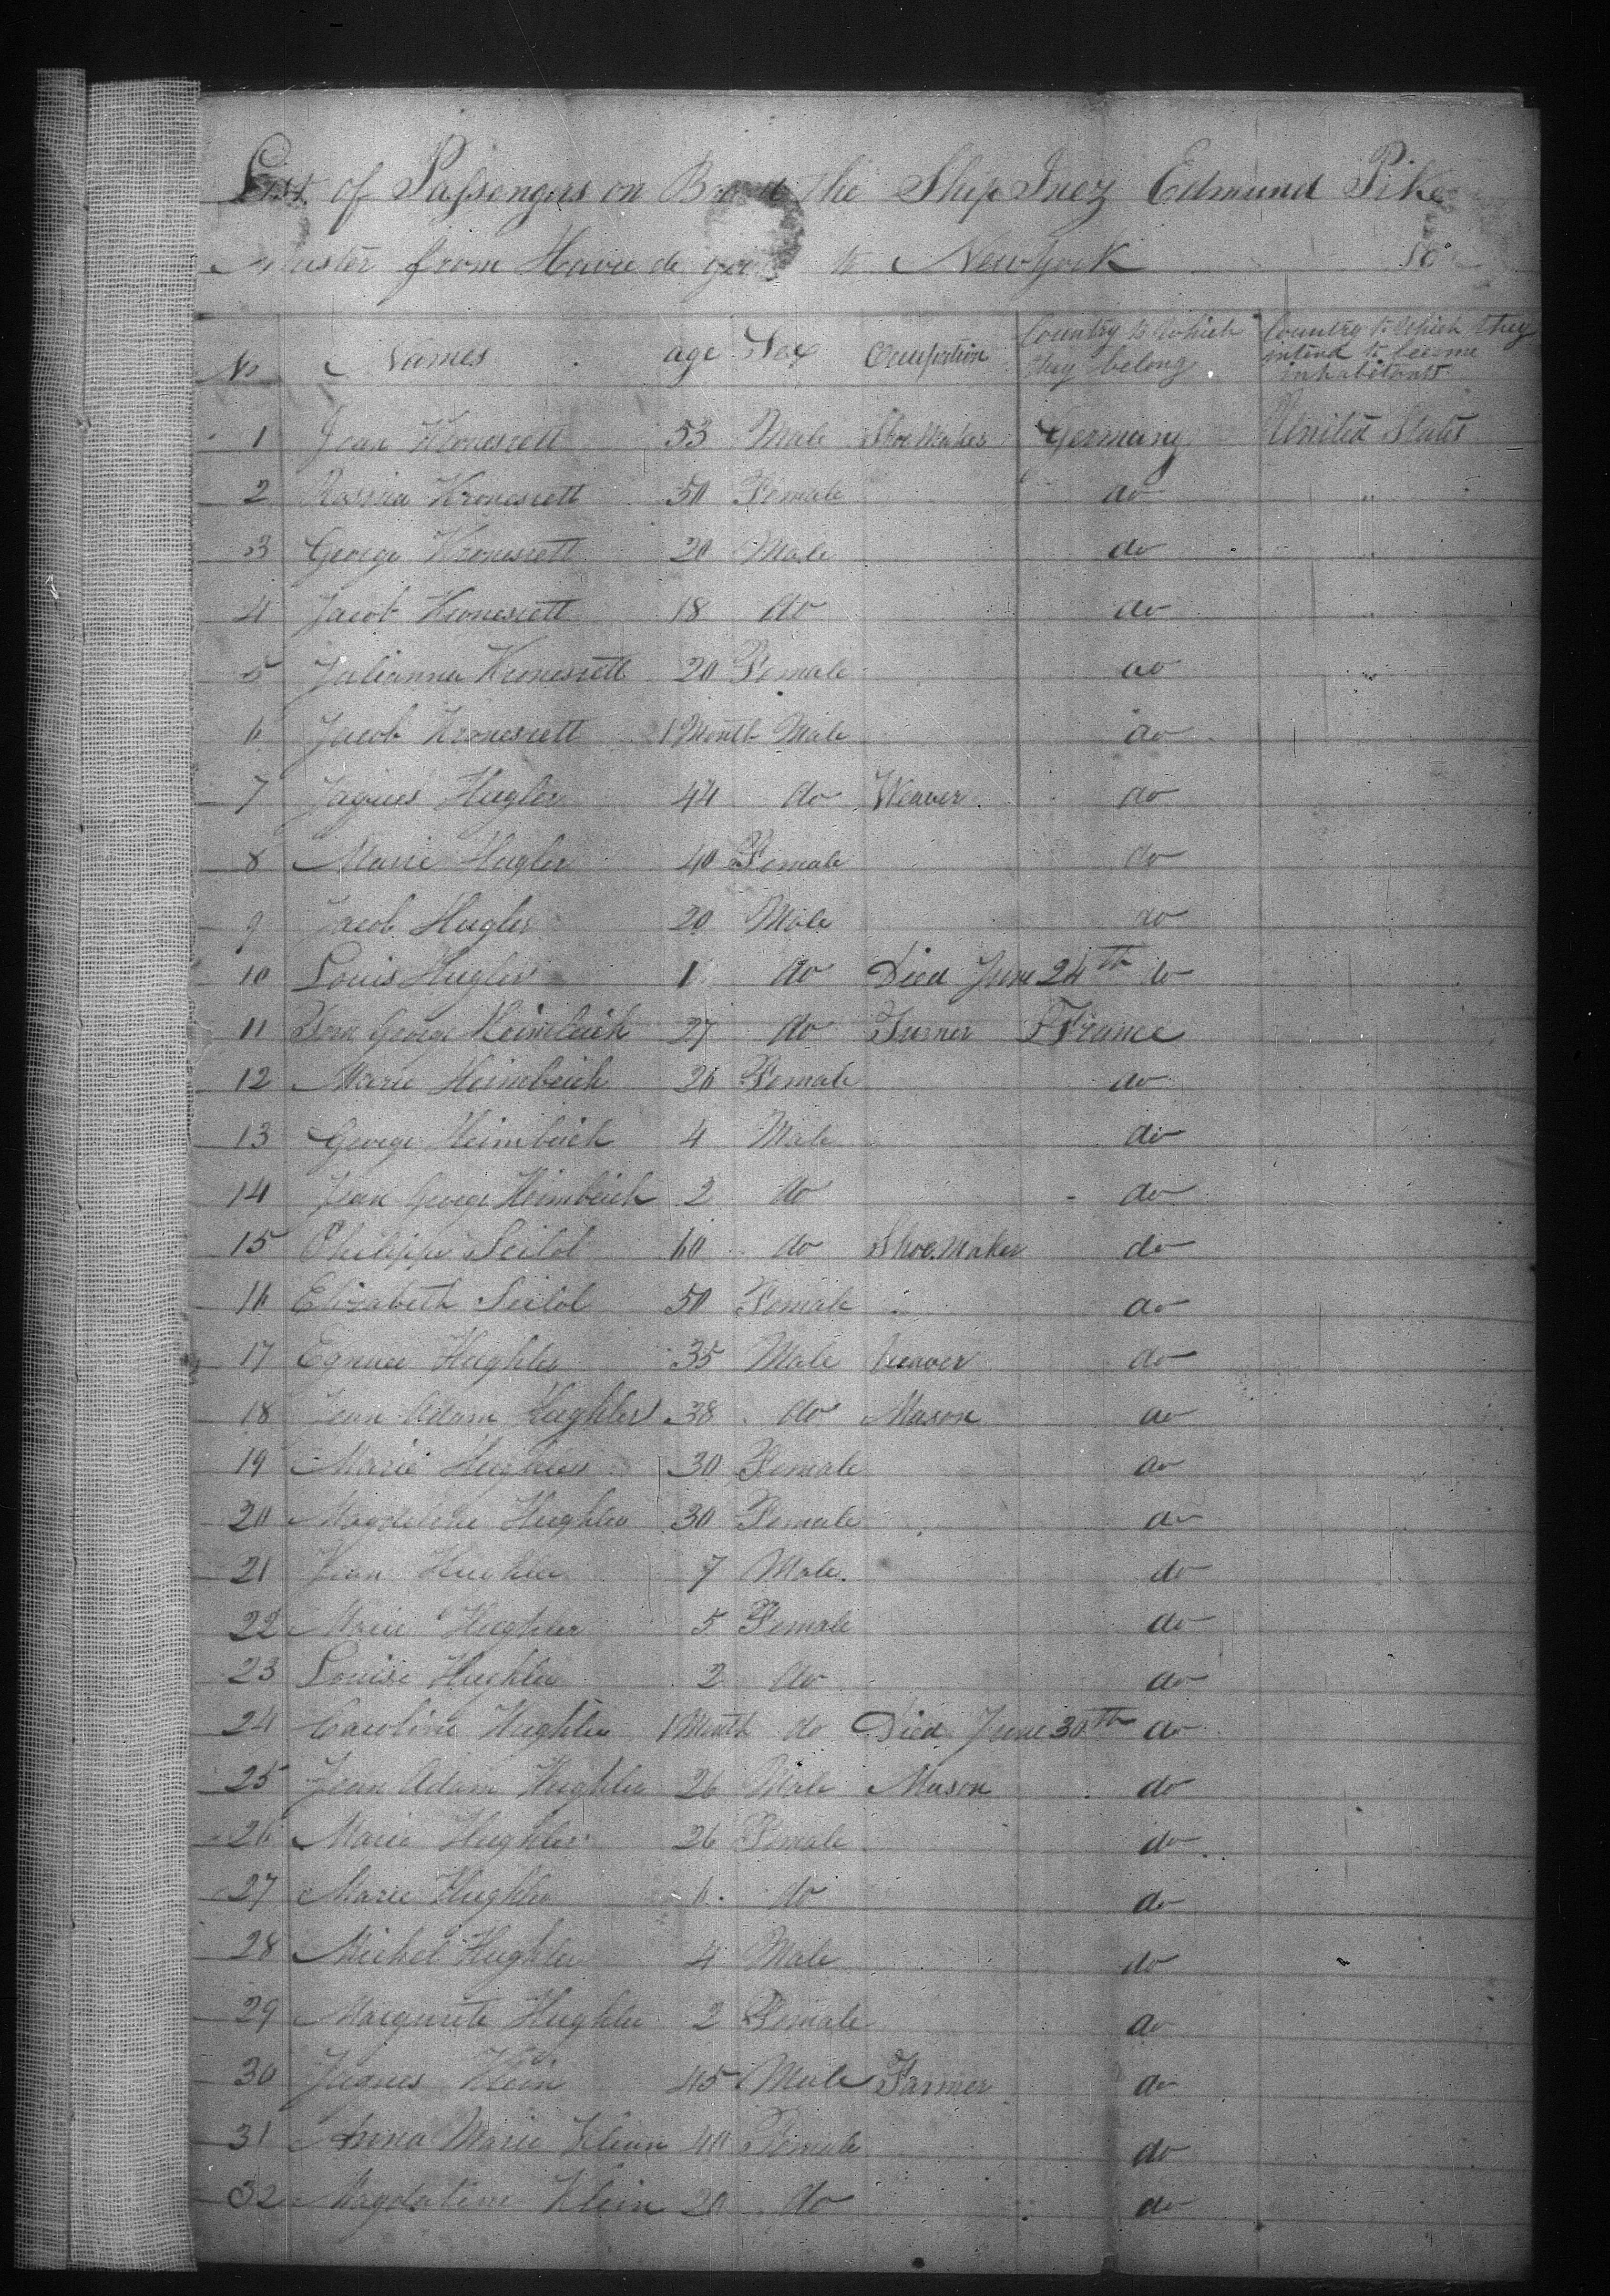 List of Passengers on Board the Ship Inez Edmund Pike
Master from Havre de to New York
No Names age Sex Occupation Country to which they belong Country to which they intend to become inhabitants
1 Jean Kronesrett 53 Male Shoe Maker Germany United States
2 Rosina Kronesrett 50 Female do "
3 George Kronesrett 20 Male do "
4 Jacob Kronesrett 18 do do "
5 Julianna Kronesrett 20 Female do "
6 Jacob Kronesrett 1 Month Male do
7 Jaques Hugler 44 do Weaver do
8 Marie Hugler 40 Female do
9 Jacob Hugler 20 Male do
10 Louis Hugler 1 do Died June 24th do
11 George Heimbeich 27 do Turner France
12 Marie Heimbeich 26 Female do
13 George Heimbeich 4 Male do
14 Jean George Heimbeich 2 do do
15 Philippe Seilol 60 do Shoe Maker do
16 Elizabeth Seilol 50 Female do
17 Hughler 35 Male weaver do
18 Jean Adam Hughler 38 do Mason do
19 Marie Hughler 30 Female do
20 Magdelene Hughler 30 Female do
21 Jean Hughler 7 Male do
22 Marie Hughler 5 Female do
23 Louise Hughler 2 do do
24 Caroline Hughler 1 Month do Died June 30th do
25 Jean Adam Hughler 26 Male Mason do
26 Marie Hughler 26 Female do
27 Marie Hughler 6 do do
28 Michel Hughler 4 Male do
29 Marguerite Hughler 2 Female do
30 Jaques Klein 45 Male Farmer do
31 Anna Marie Klein 40 Female do
32 Magdaline Klein 20 do do